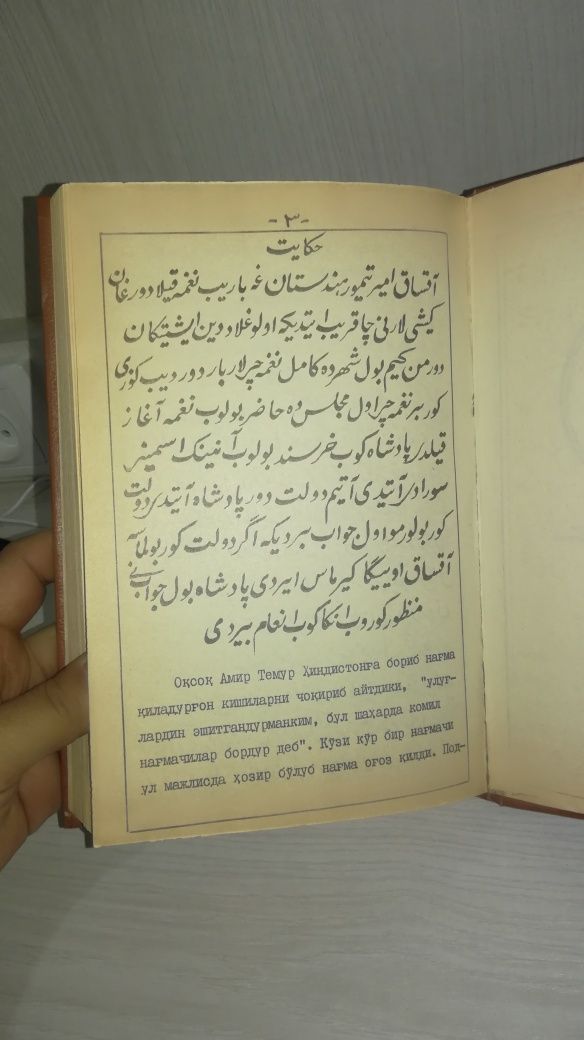 -٣-
حکایت
آقساق امیر تیمور هندستان غه باریب نغمه قیلادورغان
کیشی لارنی چاقریب ایتدیکه اولوغلاردین ایشیتکان
دورمن کیم بول شهرده کامل نغمه چیلار بار دور دیب کوزی
کور بر نغمه چی اول مجلس ده حاضر بولوب نغمه آغاز
قیلدی پادشاه کوب خرسند بولوب آنینک اسمینی
سورادی آیتدی آتیم دولت دور پادشاه آیتدی دولت
کور بولورمو اول جواب بیردیکه اگر دولت کور بولماسه
آقساق اوییگا کیرماس ایردی پادشاه بول جوابنی
منظور کوروب انکا کوب انعام بیردی
Оқсоқ Амир Темур Ҳиндистонға бориб нағма
қиладурғон кишиларни чоқириб айтдики, "улуғ-
лардин эшитгандурманким, бул шаҳарда комил
нағмачилар бордур деб". Кўзи кўр бир нағмачи
ул мажлисда ҳозир бўлуб нағма оғоз қилди. Под-